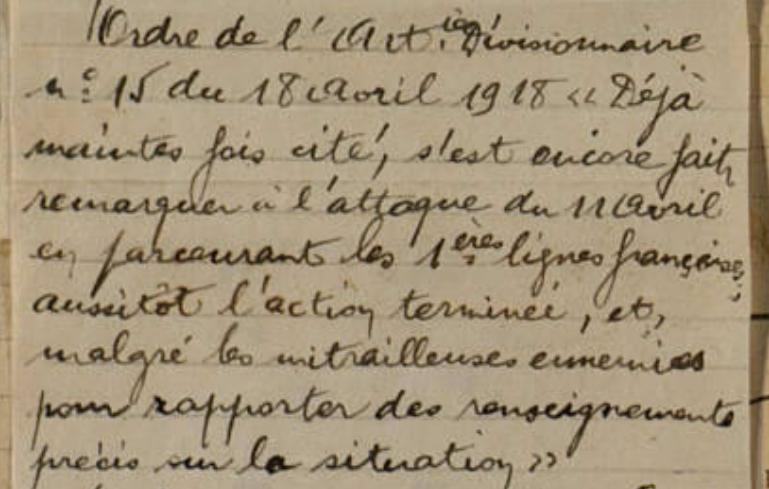 Ordre de l'Art.ie Divisionnaire
n° 15 du 18 Avril 1918 << Déjà
maintes fois cité, s'est encore fait
remarquer à l'attaque du 11 Avril
en parcourant les 1ères lignes françaises,
aussitôt l'action terminée, et,
malgré les mitrailleuses ennemies
pour rapporter des renseignements
précis sur la situation >>